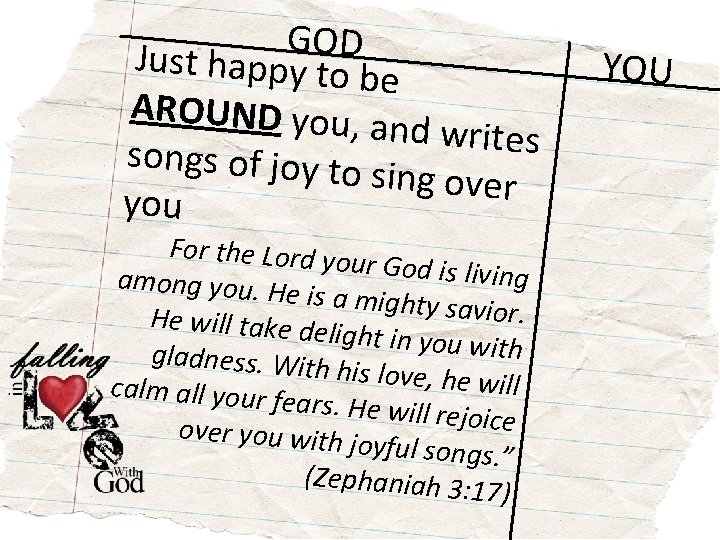 GOD
YOU
Just happy to be
AROUND you, and writes
songs of joy to sing over
you
For the Lord your God is living
among you. He is a mighty savior.
He will take delight in you with
gladness. With his love, he will
calm all your fears. He will rejoice
over you with joyful songs.”
(Zephaniah 3:17)
falling
in
LOVE
With
God